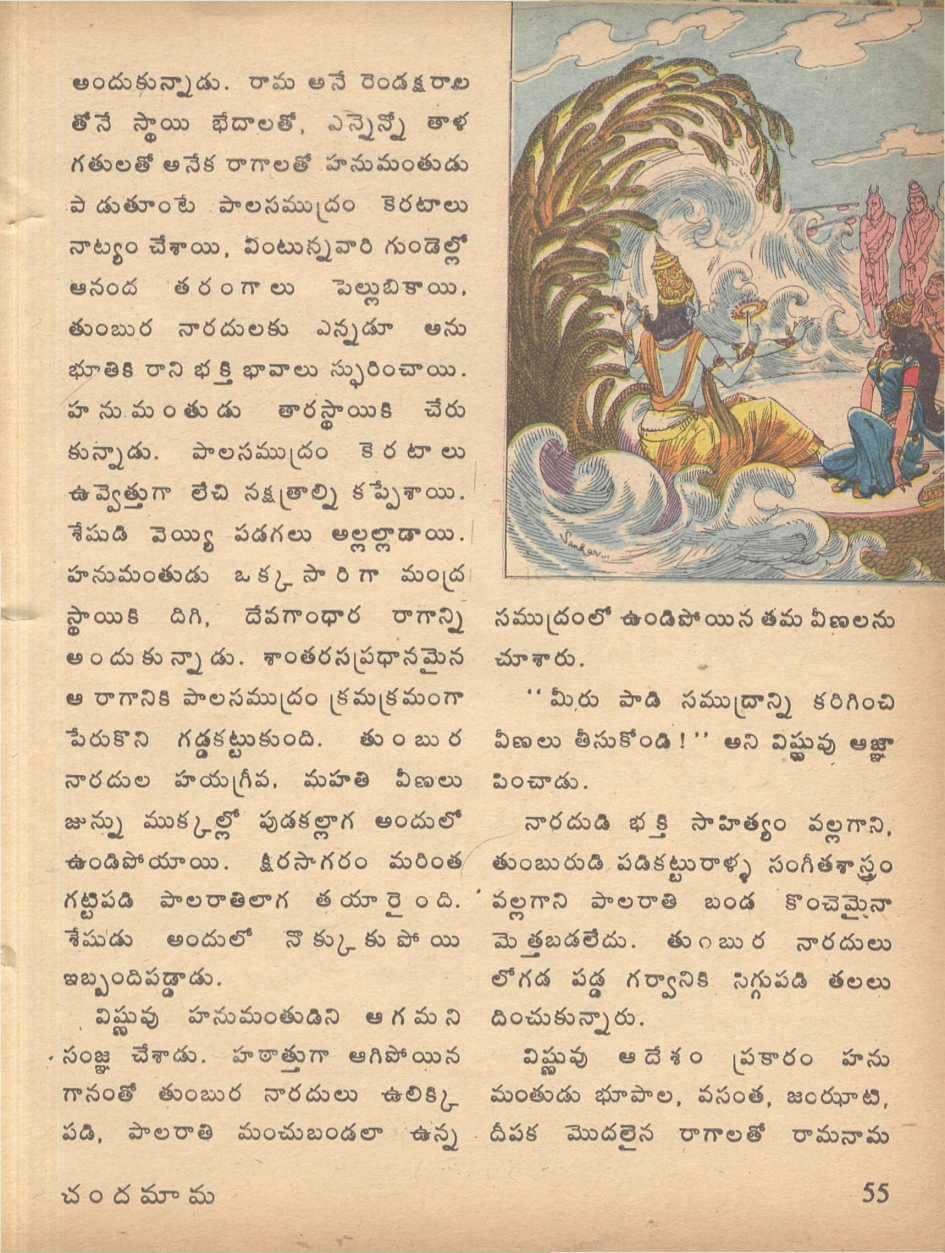 అందుకున్నాడు. రామ అనే రెండక్షరాల
తోనే స్థాయి భేదాలతో, ఎన్నెన్నో తాళ
గతులతో అనేక రాగాలతో హనుమంతుడు
పాడుతూంటే పాలసముద్రం కెరటాలు
నాట్యం చేశాయి, వింటున్నవారి గుండెల్లో
ఆనంద తరంగాలు పెల్లుబికాయి,
తుంబుర నారదులకు ఎన్నడూ అను
భూతికి రాని భక్తి భావాలు స్ఫురించాయి.
హనుమంతుడు తారస్థాయికి చేరు
కున్నాడు. పాలసముద్రం కెరటాలు
ఉవ్వెత్తుగా లేచి నక్షత్రాల్ని కప్పేశాయి.
శేషుడి వెయ్యి పడగలు అల్లల్లాడాయి.
హనుమంతుడు ఒక్కసారిగా మంద్ర
స్థాయికి దిగి, దేవగాంధార రాగాన్ని
అందుకున్నాడు. శాంతరసప్రధానమైన
ఆ రాగానికి పాలసముద్రం క్రమక్రమంగా
పేరుకొని గడ్డకట్టుకుంది. తుంబుర
నారదుల హయగ్రీవ, మహతి వీణలు
జున్ను ముక్కల్లో పుడకల్లాగ అందులో
ఉండిపోయాయి. క్షీరసాగరం మరింత
గట్టిపడి పాలరాతిలాగ తయారైంది.
శేషుడు అందులో నొక్కుకుపోయి
ఇబ్బందిపడ్డాడు.
విష్ణువు హనుమంతుడిని ఆగమని
సంజ్ఞ చేశాడు. హఠాత్తుగా ఆగిపోయిన
గానంతో తుంబుర నారదులు ఉలిక్కి
పడి, పాలరాతి మంచుబండలా ఉన్న
Sankar...
సముద్రంలో ఉండిపోయిన తమ వీణలను
చూశారు.
“మీరు పాడి సముద్రాన్ని కరిగించి
వీణలు తీసుకోండి!” అని విష్ణువు ఆజ్ఞా
పించాడు.
నారదుడి భక్తి సాహిత్యం వల్లగాని,
తుంబురుడి పడికట్టురాళ్ళ సంగీతశాస్త్రం
వల్లగాని పాలరాతి బండ కొంచెమైనా
మెత్తబడలేదు. తుంబుర నారదులు
లోగడ పడ్డ గర్వానికి సిగ్గుపడి తలలు
దించుకున్నారు.
విష్ణువు ఆదేశం ప్రకారం హను
మంతుడు భూపాల, వసంత, జంఝాటి,
దీపక మొదలైన రాగాలతో రామనామ
చందమామ
55